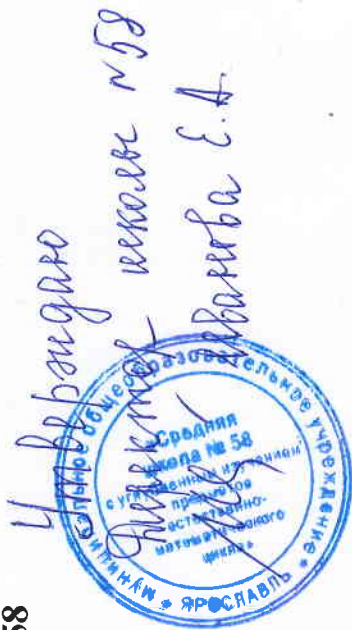 58
Утверждаю
Директор школы №58
Иванова Е.А.
муниципальное общеобразовательное учреждение * ЯРОСЛАВЛЬ *
«Средняя
школа № 58
с углублённым изучением
предметов
естественно-
математического
цикла»